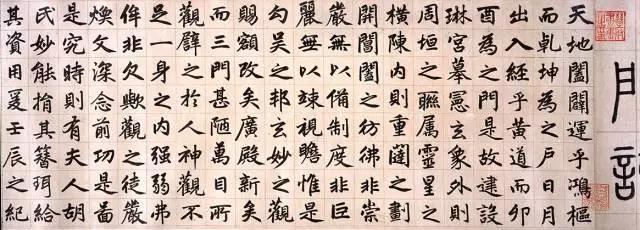 天地闔闢運乎鴻樞
而乾坤為之戶日月
出入經乎黃道而卯
酉為之門是故建設
琳宮摹憲玄象外則
周垣之聯属靈星之
橫陳內則重闥之劃
開閶闔之彷彿非崇
嚴無以備制度非巨
麗無以竦視瞻惟是
勾吳之邦玄妙之觀
賜額改矣廣殿新矣
而三門甚陋萬目所
觀譬之於人神觀不
足一身之內强弱弗
侔非欠歟觀之徒嚴
煥文深念前功是啚
是究時則有夫人胡
氏妙能捐其簪珥給
其資用爰壬辰之紀